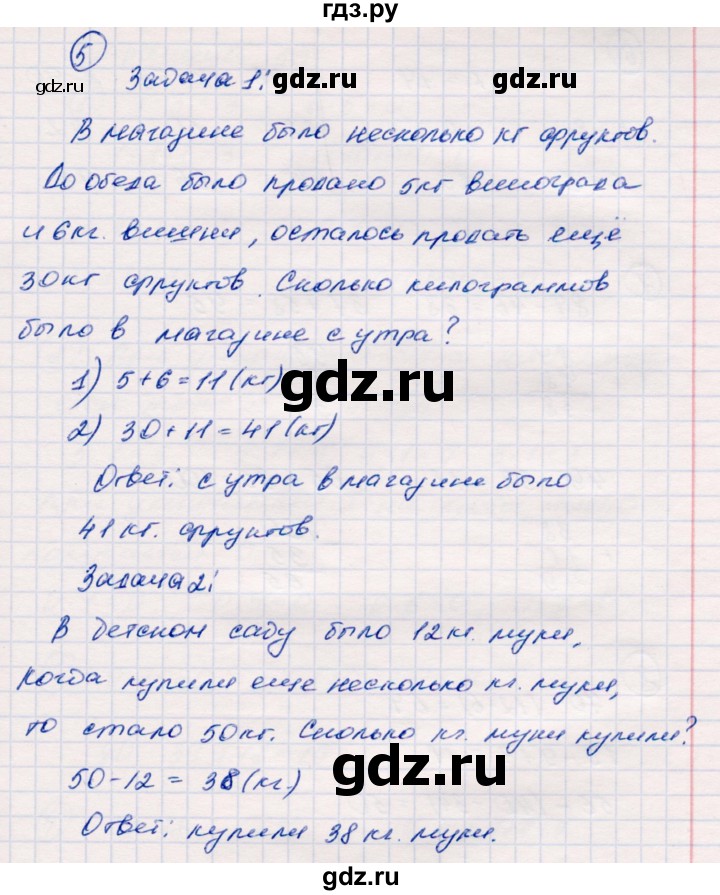 гдз.ру
5
Задача 1:
gdz.ru gdz.ru gdz.ru
В магазине было несколько кг фруктов.
До обеда было продано 5кг винограда
и 6кг. вишни, осталось продать ещё
30кг фруктов. Сколько килограммов
было в магазине с утра?
1) 5+6=11(кг)
gdz.ru
2) 30+11=41(кг)
Ответ: с утра в магазине было
41кг. фруктов.
gdz.ru
Задача 2:
В детском саду было 12кг. муки,
когда купили еще несколько кг. муки,
то стало 50кг. Сколько кг. муки купили?
50-12 = 38(кг.)
gdz.ru gdz.ru
Ответ: купили 38 кг. муки.
gdz.ru